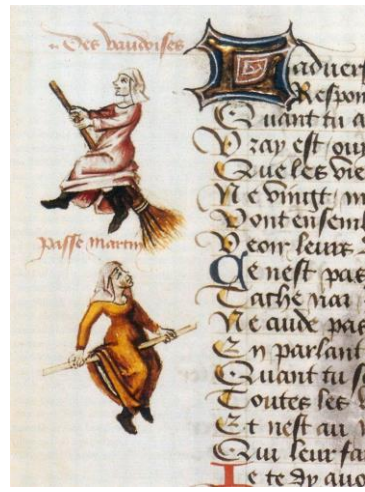 Des vaudoises
passe martin
L aduers
Respon
Quant tu a
Vray est ouy
Que les vie
Ne vingt m
Vont ensembl
Veoir leurs
Ce nest pas
Tache nai
Ne cuide pas
En parlant
Quant tu s
Toutes les
Et nest au
Qui leur fa
Je te dy auo